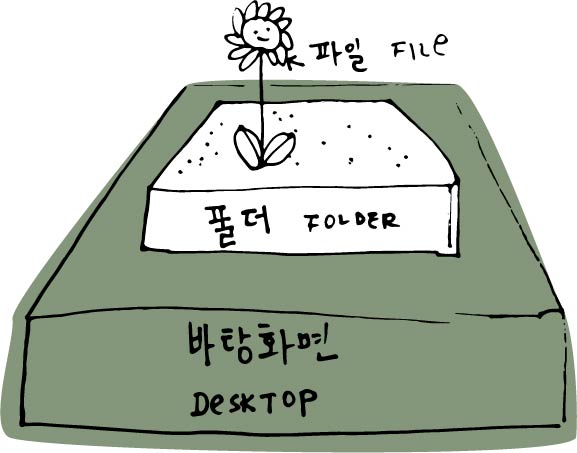 파일 FILE
폴더 FOLDER
바탕화면
DESKTOP